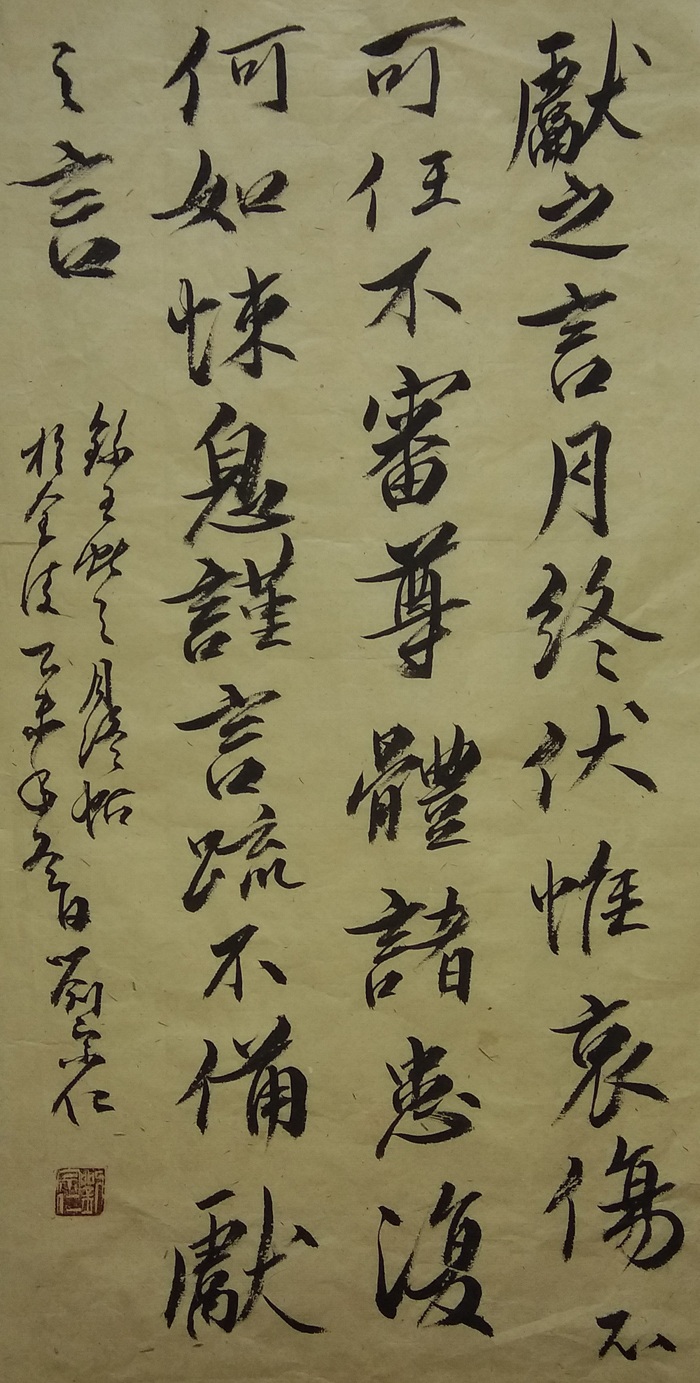 獻之言月終伏惟哀傷不
可任不審尊體諸患復
何如悚息謹言疏不備獻
之言
錄王獻之月終帖
於金陵乙未年冬日劉宗仁
劉宗仁